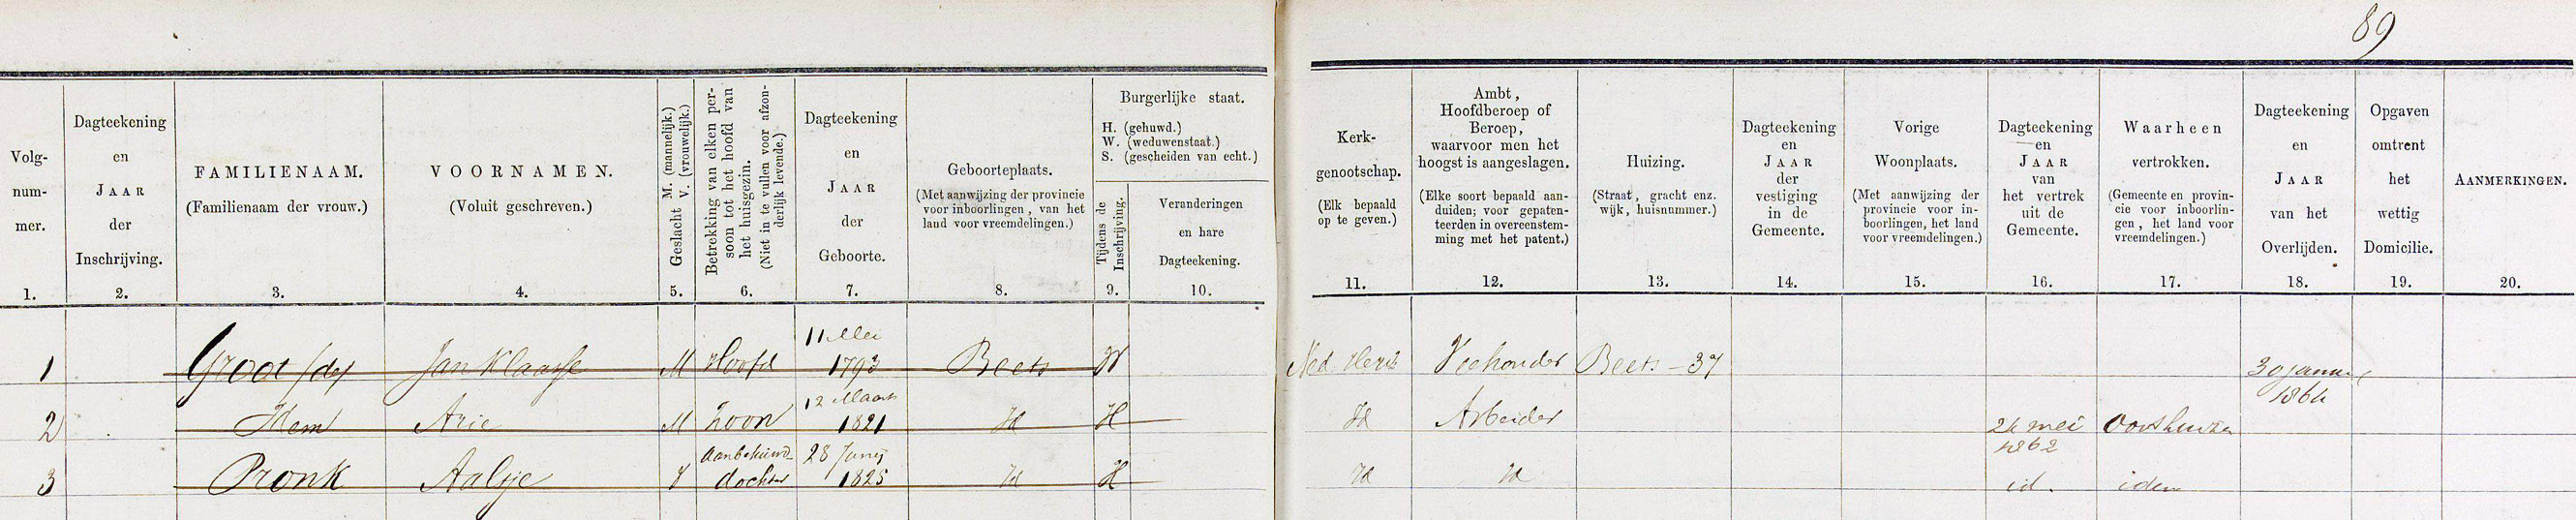 89
Volg-
num-
mer.
1.
Dagteekening
en
JAAR
der
Inschrijving.
2.
FAMILIENAAM.
(Familienaam der vrouw.)
3.
VOORNAMEN.
(Voluit geschreven.)
4.
Geslacht M. (mannelijk.)
V. (vrouwelijk.)
5.
Betrekking van elken per-
soon tot het hoofd van
het huisgezin.
(Niet in te vullen voor afzon-
derlijk levende.)
6.
Dagteekening
en
JAAR
der
Geboorte.
7.
Geboorteplaats.
(Met aanwijzing der provincie
voor inboorlingen, van het
land voor vreemdelingen.)
8.
Burgerlijke staat.
H. (gehuwd.)
W. (weduwenstaat.)
S. (gescheiden van echt.)
Tijdens de
Inschrijving.
9.
Veranderingen
en hare
Dagteekening.
10.
Kerk-
genootschap.
(Elk bepaald
op te geven.)
11.
Ambt,
Hoofdberoep of
Beroep,
waarvoor men het
hoogst is aangeslagen.
(Elke soort bepaald aan-
duiden; voor gepaten-
teerden in overeenstem-
ming met het patent.)
12.
Huizing.
(Straat, gracht enz.
wijk, huisnummer.)
13.
Dagteekening
en
JAAR
der
vestiging
in de
Gemeente.
14.
Vorige
Woonplaats.
(Met aanwijzing der
provincie voor in-
boorlingen, het land
voor vreemdelingen.)
15.
Dagteekening
en
JAAR
van
het vertrek
uit de
Gemeente.
16.
Waarheen
vertrokken.
(Gemeente en provin-
cie voor inboorlin-
gen, het land voor
vreemdelingen.)
17.
Dagteekening
en
JAAR
van het
Overlijden.
18.
Opgaven
omtrent
het
wettig
Domicilie.
19.
AANMERKINGEN.
20.
11 Mei
1 Groot (de) Jan Klaasse M Hoofd 1793 Beets W Ned. Herv. Veehouder Beets - 37 30 Januari
1864
12 Maart
2 Idem Arie M Zoon 1821 Id H Id Arbeider 24 mei Oosthuizen
1862
Aanbehuwd- 28 Junij
3 Pronk Aaltje V dochter 1825 Id H Id Id id. idem